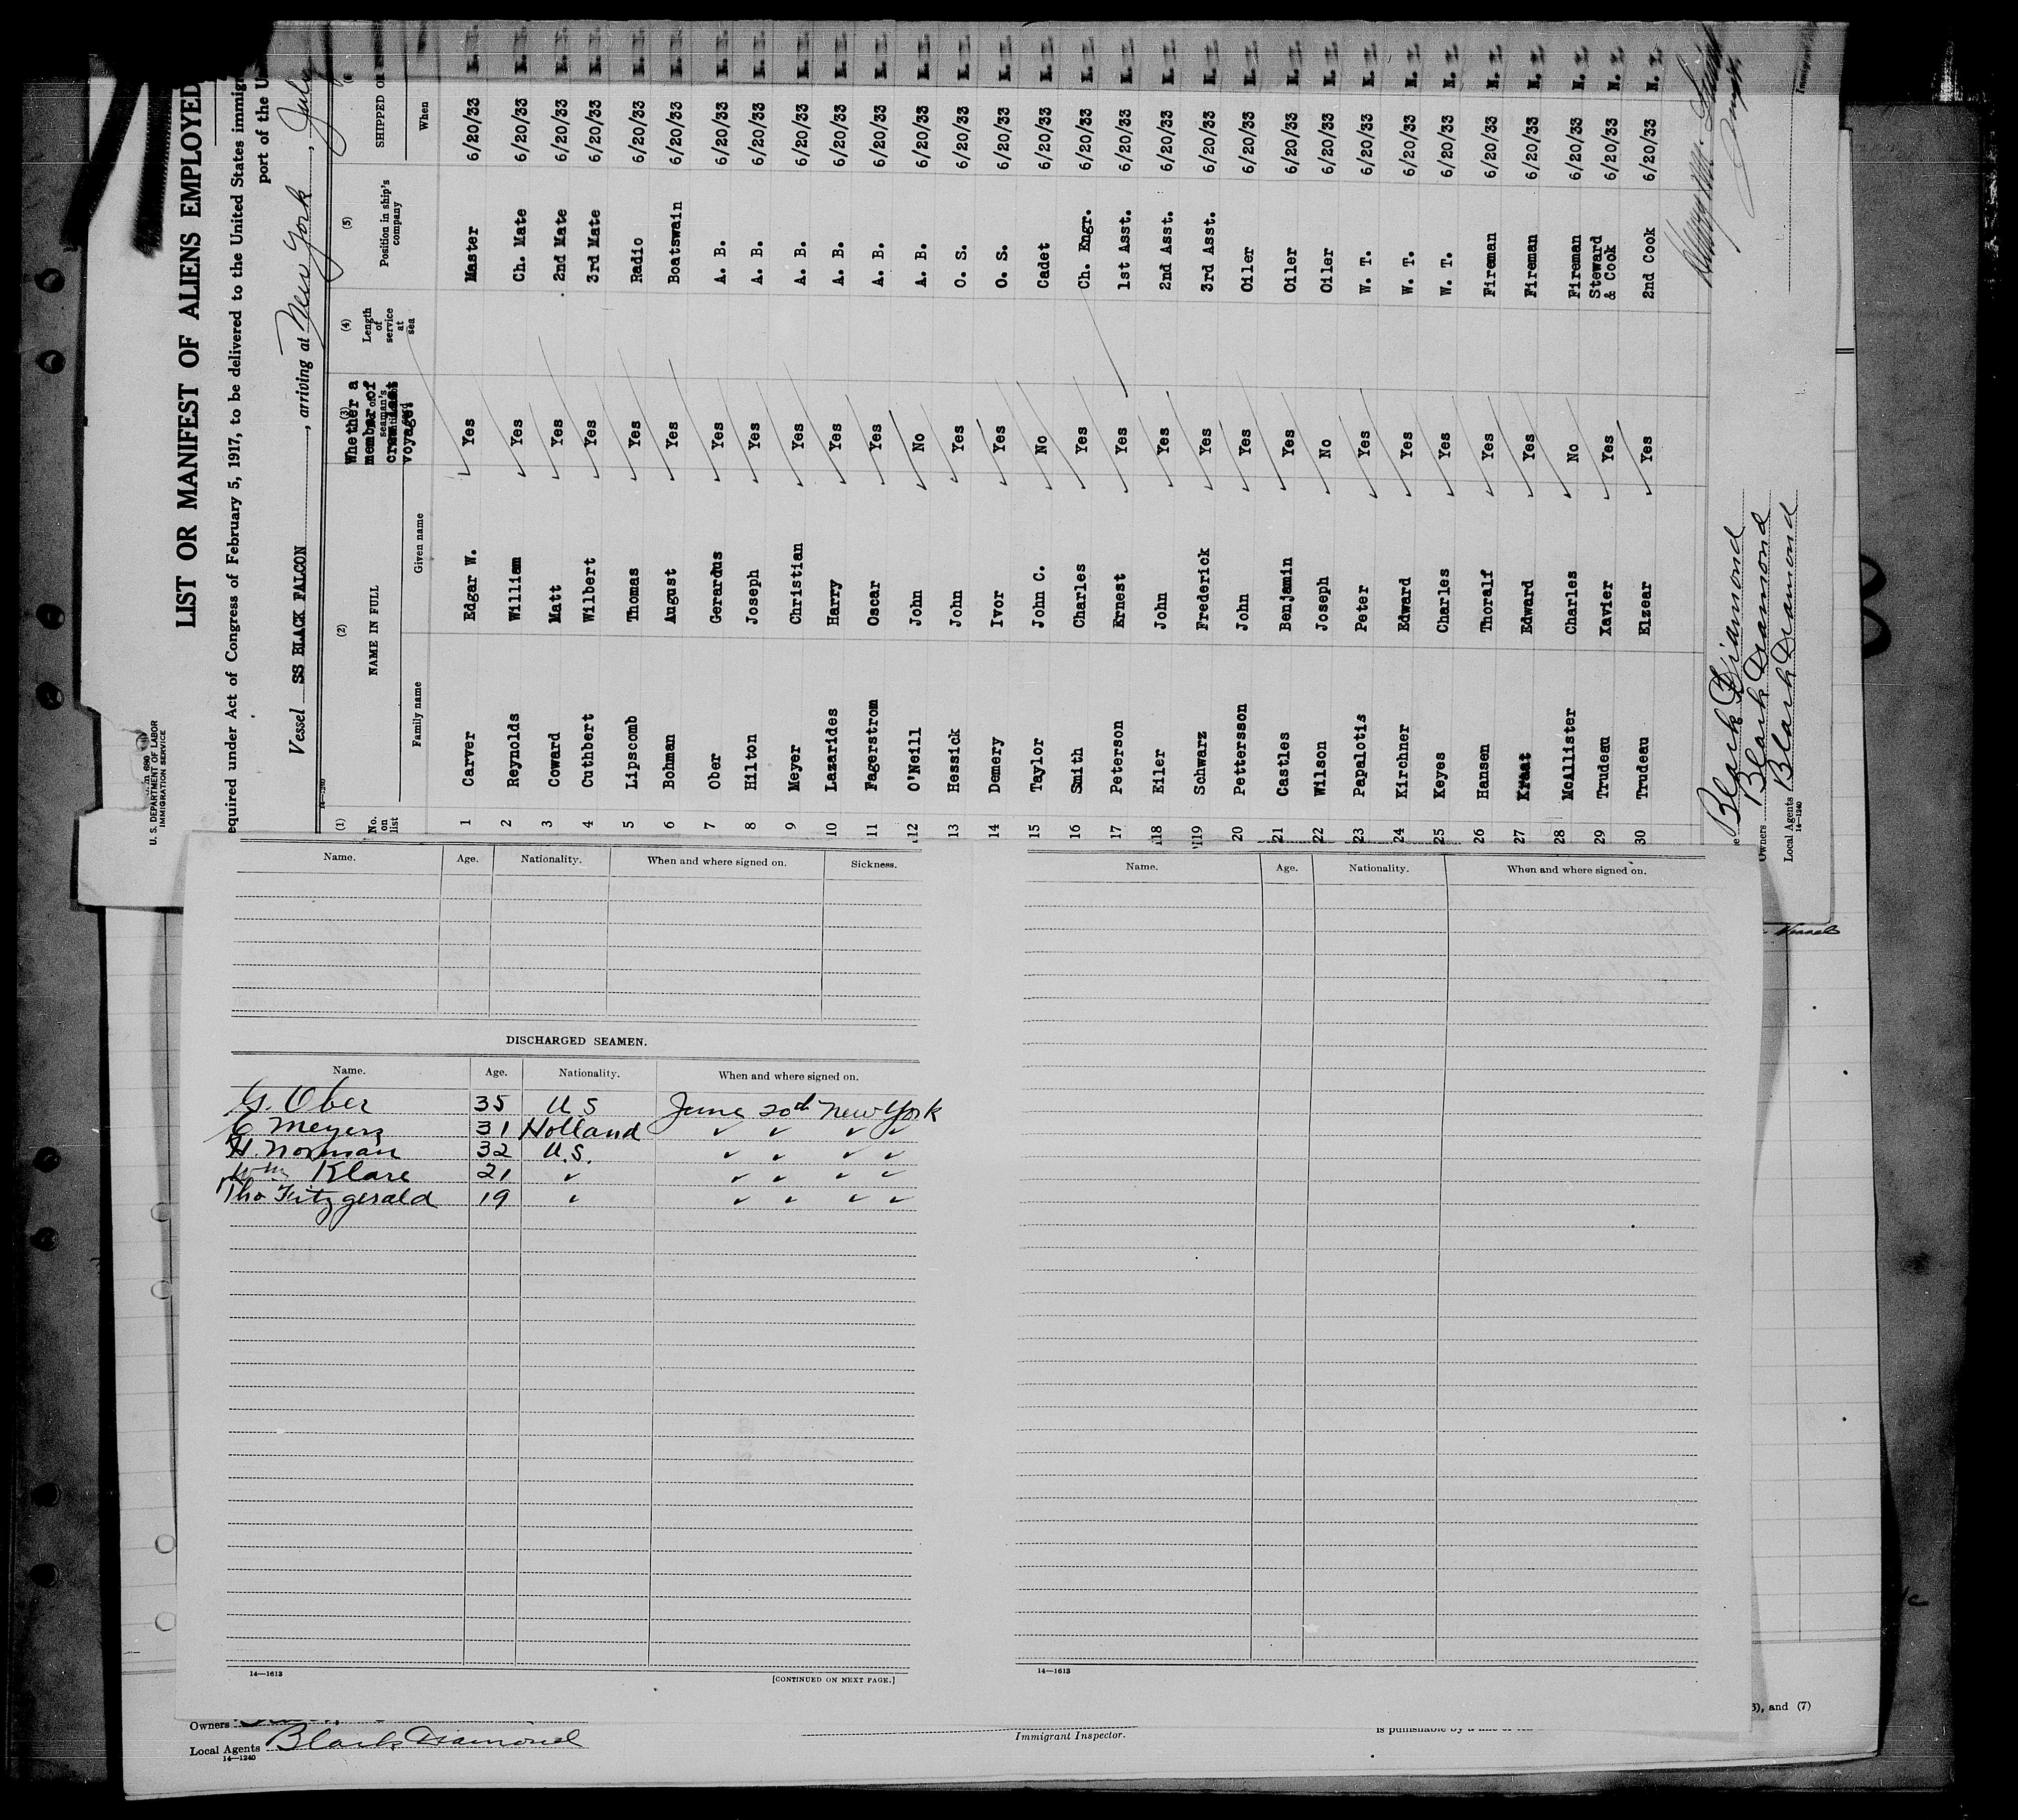 U. S. DEPARTMENT OF LABOR
IMMIGRATION SERVICE
LIST OR MANIFEST OF ALIENS EMPLOYED
equired under Act of Congress of February 5, 1917, to be delivered to the United States immigr
port of the U
Vessel SS BLACK FALCON, arriving at New York, July
14—1240
(1) (2) (3) (4) (5)
No. on list NAME IN FULL Whether a member of crew last voyage. Length of service at sea Position in ship's company SHIPPED OR
Family name Given name When
1 Carver Edgar W. Yes Master 6/20/33
2 Reynolds William Yes Ch. Mate 6/20/33
3 Coward Matt Yes 2nd Mate 6/20/33
4 Cuthbert Wilbert Yes 3rd Mate 6/20/33
5 Lipscomb Thomas Yes Radio 6/20/33
6 Bohman August Yes Boatswain 6/20/33
7 Ober Gerardus Yes A. B. 6/20/33
8 Hilton Joseph Yes A. B. 6/20/33
9 Meyer Christian Yes A. B. 6/20/33
10 Lazarides Harry Yes A. B. 6/20/33
11 Fagerstrom Oscar Yes A. B. 6/20/33
12 O'Neill John No A. B. 6/20/33
13 Hessick John Yes O. S. 6/20/33
14 Demery Ivor Yes O. S. 6/20/33
15 Taylor John C. No Cadet 6/20/33
16 Smith Charles Yes Ch. Engr. 6/20/33
17 Peterson Ernest Yes 1st Asst. 6/20/33
18 Eiler John Yes 2nd Asst. 6/20/33
19 Schwarz Frederick Yes 3rd Asst. 6/20/33
20 Pettersson John Yes Oiler 6/20/33
21 Castles Benjamin Yes Oiler 6/20/33
22 Wilson Joseph No Oiler 6/20/33
23 Papalotis Peter Yes W. T. 6/20/33
24 Kirchner Edward Yes W. T. 6/20/33
25 Keyes Charles Yes W. T. 6/20/33
26 Hansen Thoralf Yes Fireman 6/20/33 N. Y.
27 Kraat Edward Yes Fireman 6/20/33 N. Y.
28 McAllister Charles No Fireman 6/20/33 N. Y.
29 Trudeau Xavier Yes Steward & Cook 6/20/33 N. Y.
30 Trudeau Elzear Yes 2nd Cook 6/20/33 N. Y.
Black Diamond
Owners Black Diamond
Local Agents Black Diamond
14—1240
Immigrant
Name. Age. Nationality. When and where signed on. Sickness.
DISCHARGED SEAMEN.
Name. Age. Nationality. When and where signed on.
G. Ober 35 U S June 20th New York
C Meyers 31 Holland ✓ ✓ ✓ ✓
H. Norman 32 U.S. ✓ ✓ ✓ ✓
Wm Klare 21 ✓ ✓ ✓ ✓ ✓
Tho Fitzgerald 19 ✓ ✓ ✓ ✓ ✓
14—1613 [CONTINUED ON NEXT PAGE.]
Name. Age. Nationality. When and where signed on.
14—1613
Vessel
Owners
Local Agents Black Diamond
14—1240
Immigrant Inspector.
is punishable by a
), and (7)